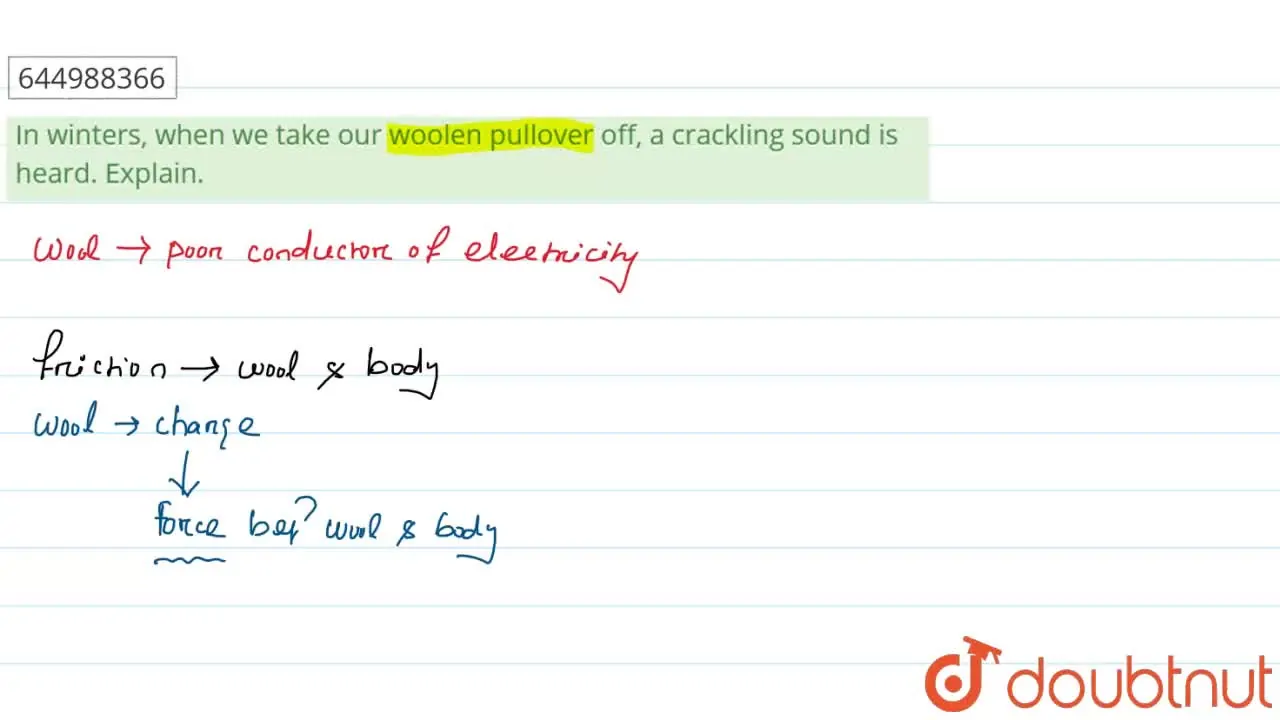 644988366
In winters, when we take our woolen pullover off, a crackling sound is
heard. Explain.
Wool → poor conductor of electricity
friction → wool & body
wool → charge
↓
force betⁿ wool & body
doubtnut